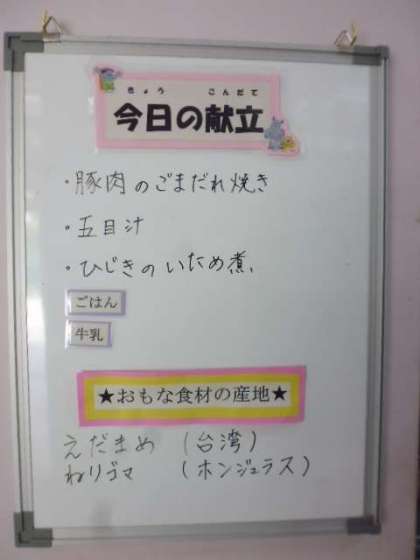 きょう こんだて
今日の献立
・豚肉のごまだれ焼き
・五目汁
・ひじきのいため煮
ごはん
牛乳
★おもな食材の産地★
えだまめ (台湾)
ねりゴマ (ホンジュラス)